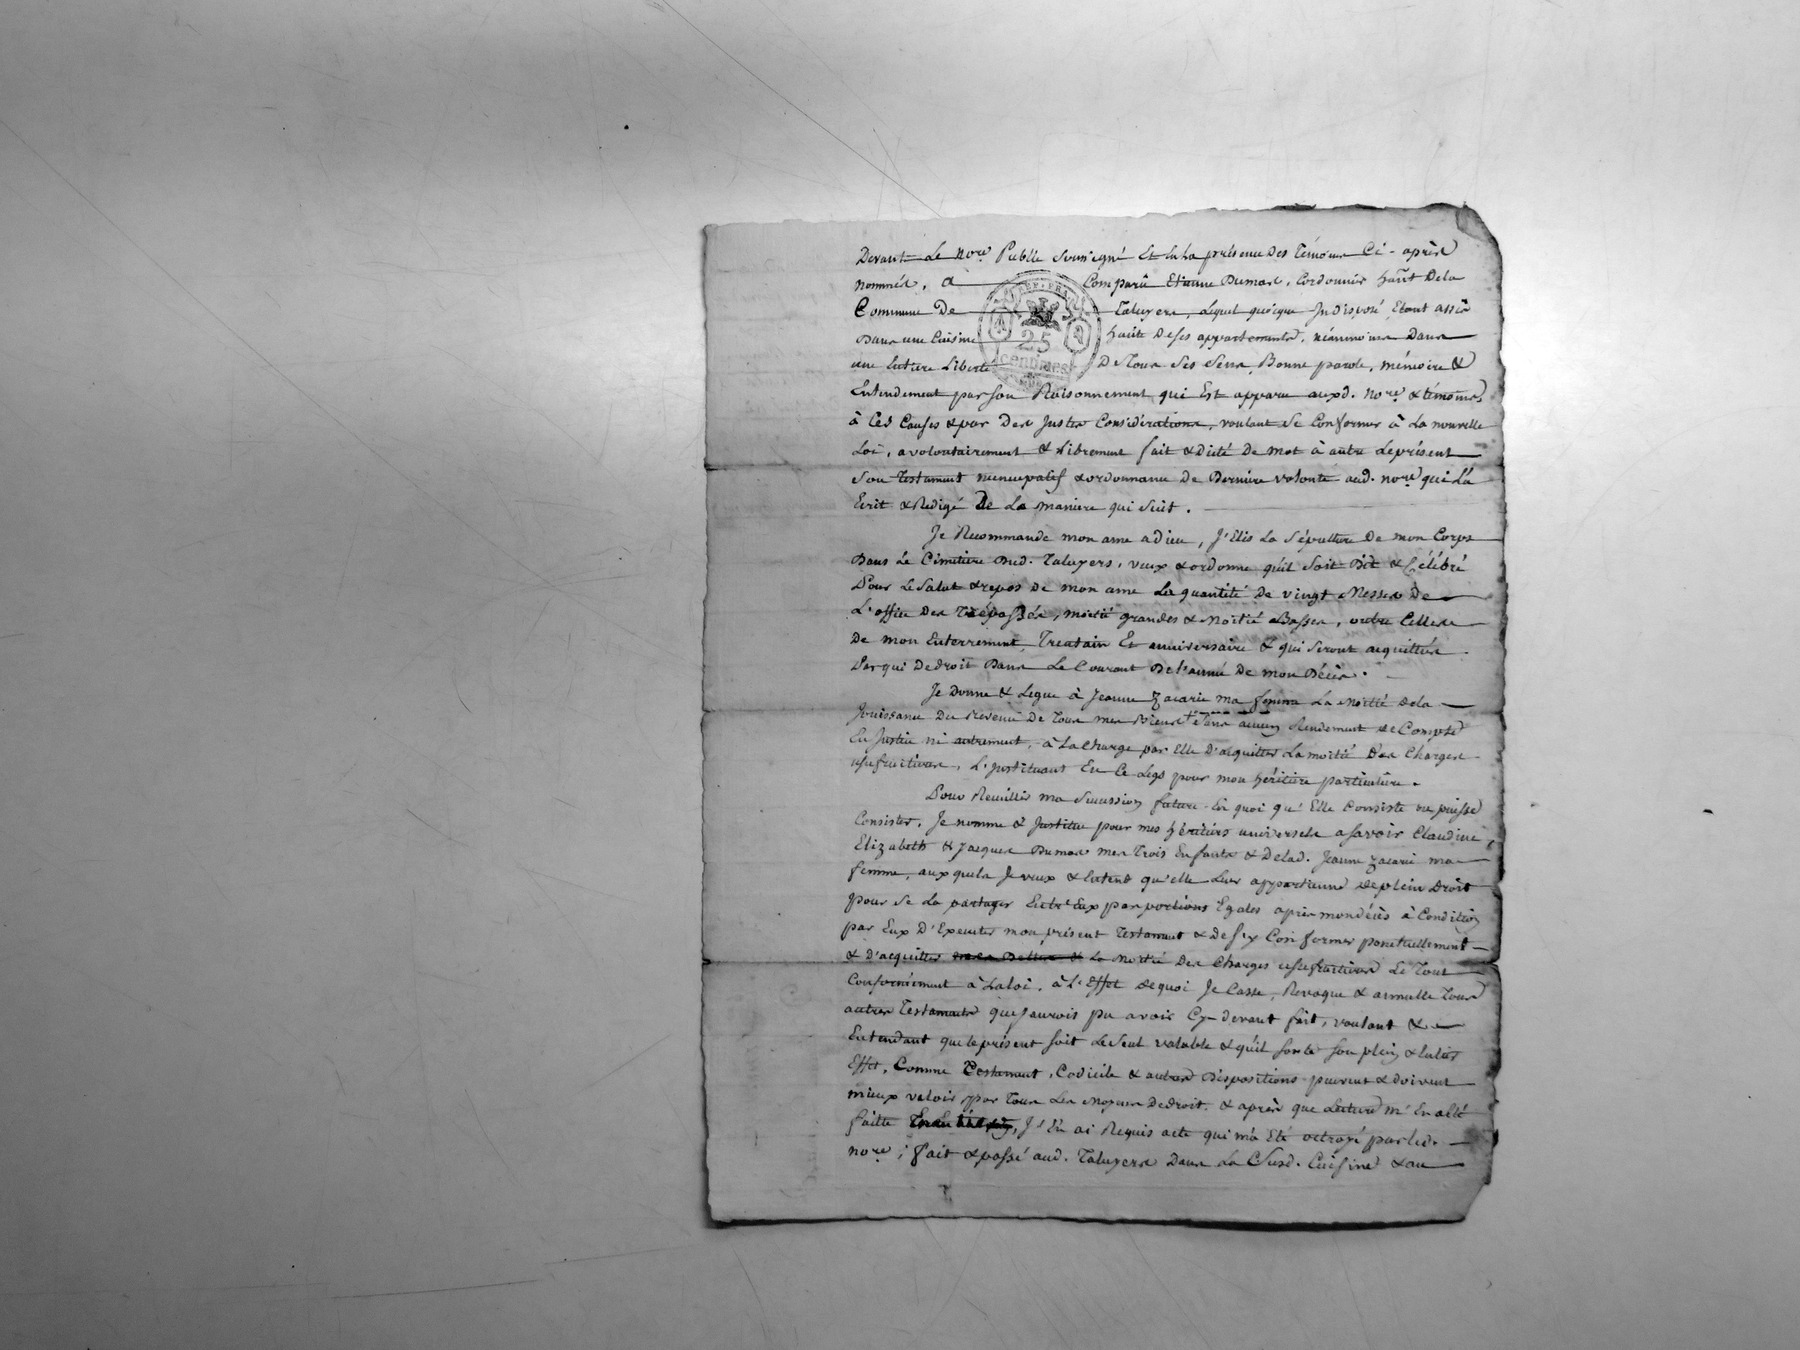 Devant Le nore Public Soussigné Et en la présence Des Témoins Ci-après
nommés, a Comparû Etienne Dumas, Cordonnier haut Dela
Commune De Taluyers, Lequel quoique Indisposé, Etant assis
Dans une Cuisine haute De ses appartements, néanmoins Dans
une Entiere Liberté De Tous Ses Sens, Bonne parole, mémoire &
Entendement par son Raisonnement qui Est apparu auxd. nore & témoins,
à Ces Causes & par Des Justes Considérations, voulant Se Conformer à La nouvelle
Loi, a volontairement & Librement fait & Dicté De mot à autre Le présent
Son Testament nuncupatif & ordonnance De Derniere volonté aud. nore qui L'a
Ecrit & Redigé De La maniere qui Suit.
Je Recommande mon ame a Dieu, J'Elis La Sépulture De mon Corps
Dans Le Cimetiere Dud. Taluyers, veux & ordonne qu'il Soit Dit & Célébré
Pour Le Salut & repos De mon ame La quantité De vingt Messes De
L'office Des Trépassés, moitié grandes & Moitié Basses, outre Celles
De mon Enterrement, Trentain Et anniversaire & qui Seront acquittés
Par qui De droit Dans Le Courant De l'année De mon Décès.
Je Donne & Legue à Jeanne Zacarie ma femme La Moitié Dela
Jouissance Du Revenu De Tous mes Biens Sans aucun Rendement De Compte
En Justice ni autrement, à La Charge par Elle D'acquitter La moitié Des Charges
usufructives, L'Instituant En Ce Legs pour mon héritiere particuliere.
Pour Reuillir ma Succession future En quoi qu'Elle Consiste ou puisse
Consister, Je nomme & Institue pour mes héritiers universels a savoir Claudine,
Elizabeth & Jacques Dumas mes Trois Enfants & De lad. Jeanne Zacarie ma
femme, aux quels Je veux & Entend qu'elle Leur appartienne De plein Droit
pour Se La partager Entr'Eux par portions Egales après mon décès à Condition
par Eux D'Executer mon présent Testament & De s'y Conformer ponctuellement
& D'acquitter La Moitié Des Charges usufructives Le Tout
Conformément à La loi, à L'effet De quoi Je Casse, Revoque & annulle Tous
autres Testaments que J'aurois pu avoir Cy-devant fait, voulant &
Entendant que le présent soit Le Seul valable & qu'il sorte Son plein & Entier
Effet, Comme Testament, Codicile & autres Dispositions peuvent & doivent
mieux valoir par Tous Les Moyens De droit. & après que Lecture m'En a Eté
faitte, J'En ai Requis acte qui m'a Eté octroyé par led.
nore; fait & passé aud. Taluyers Dans La Susd. Cuisine & au
REP. FRA.
25
centimes